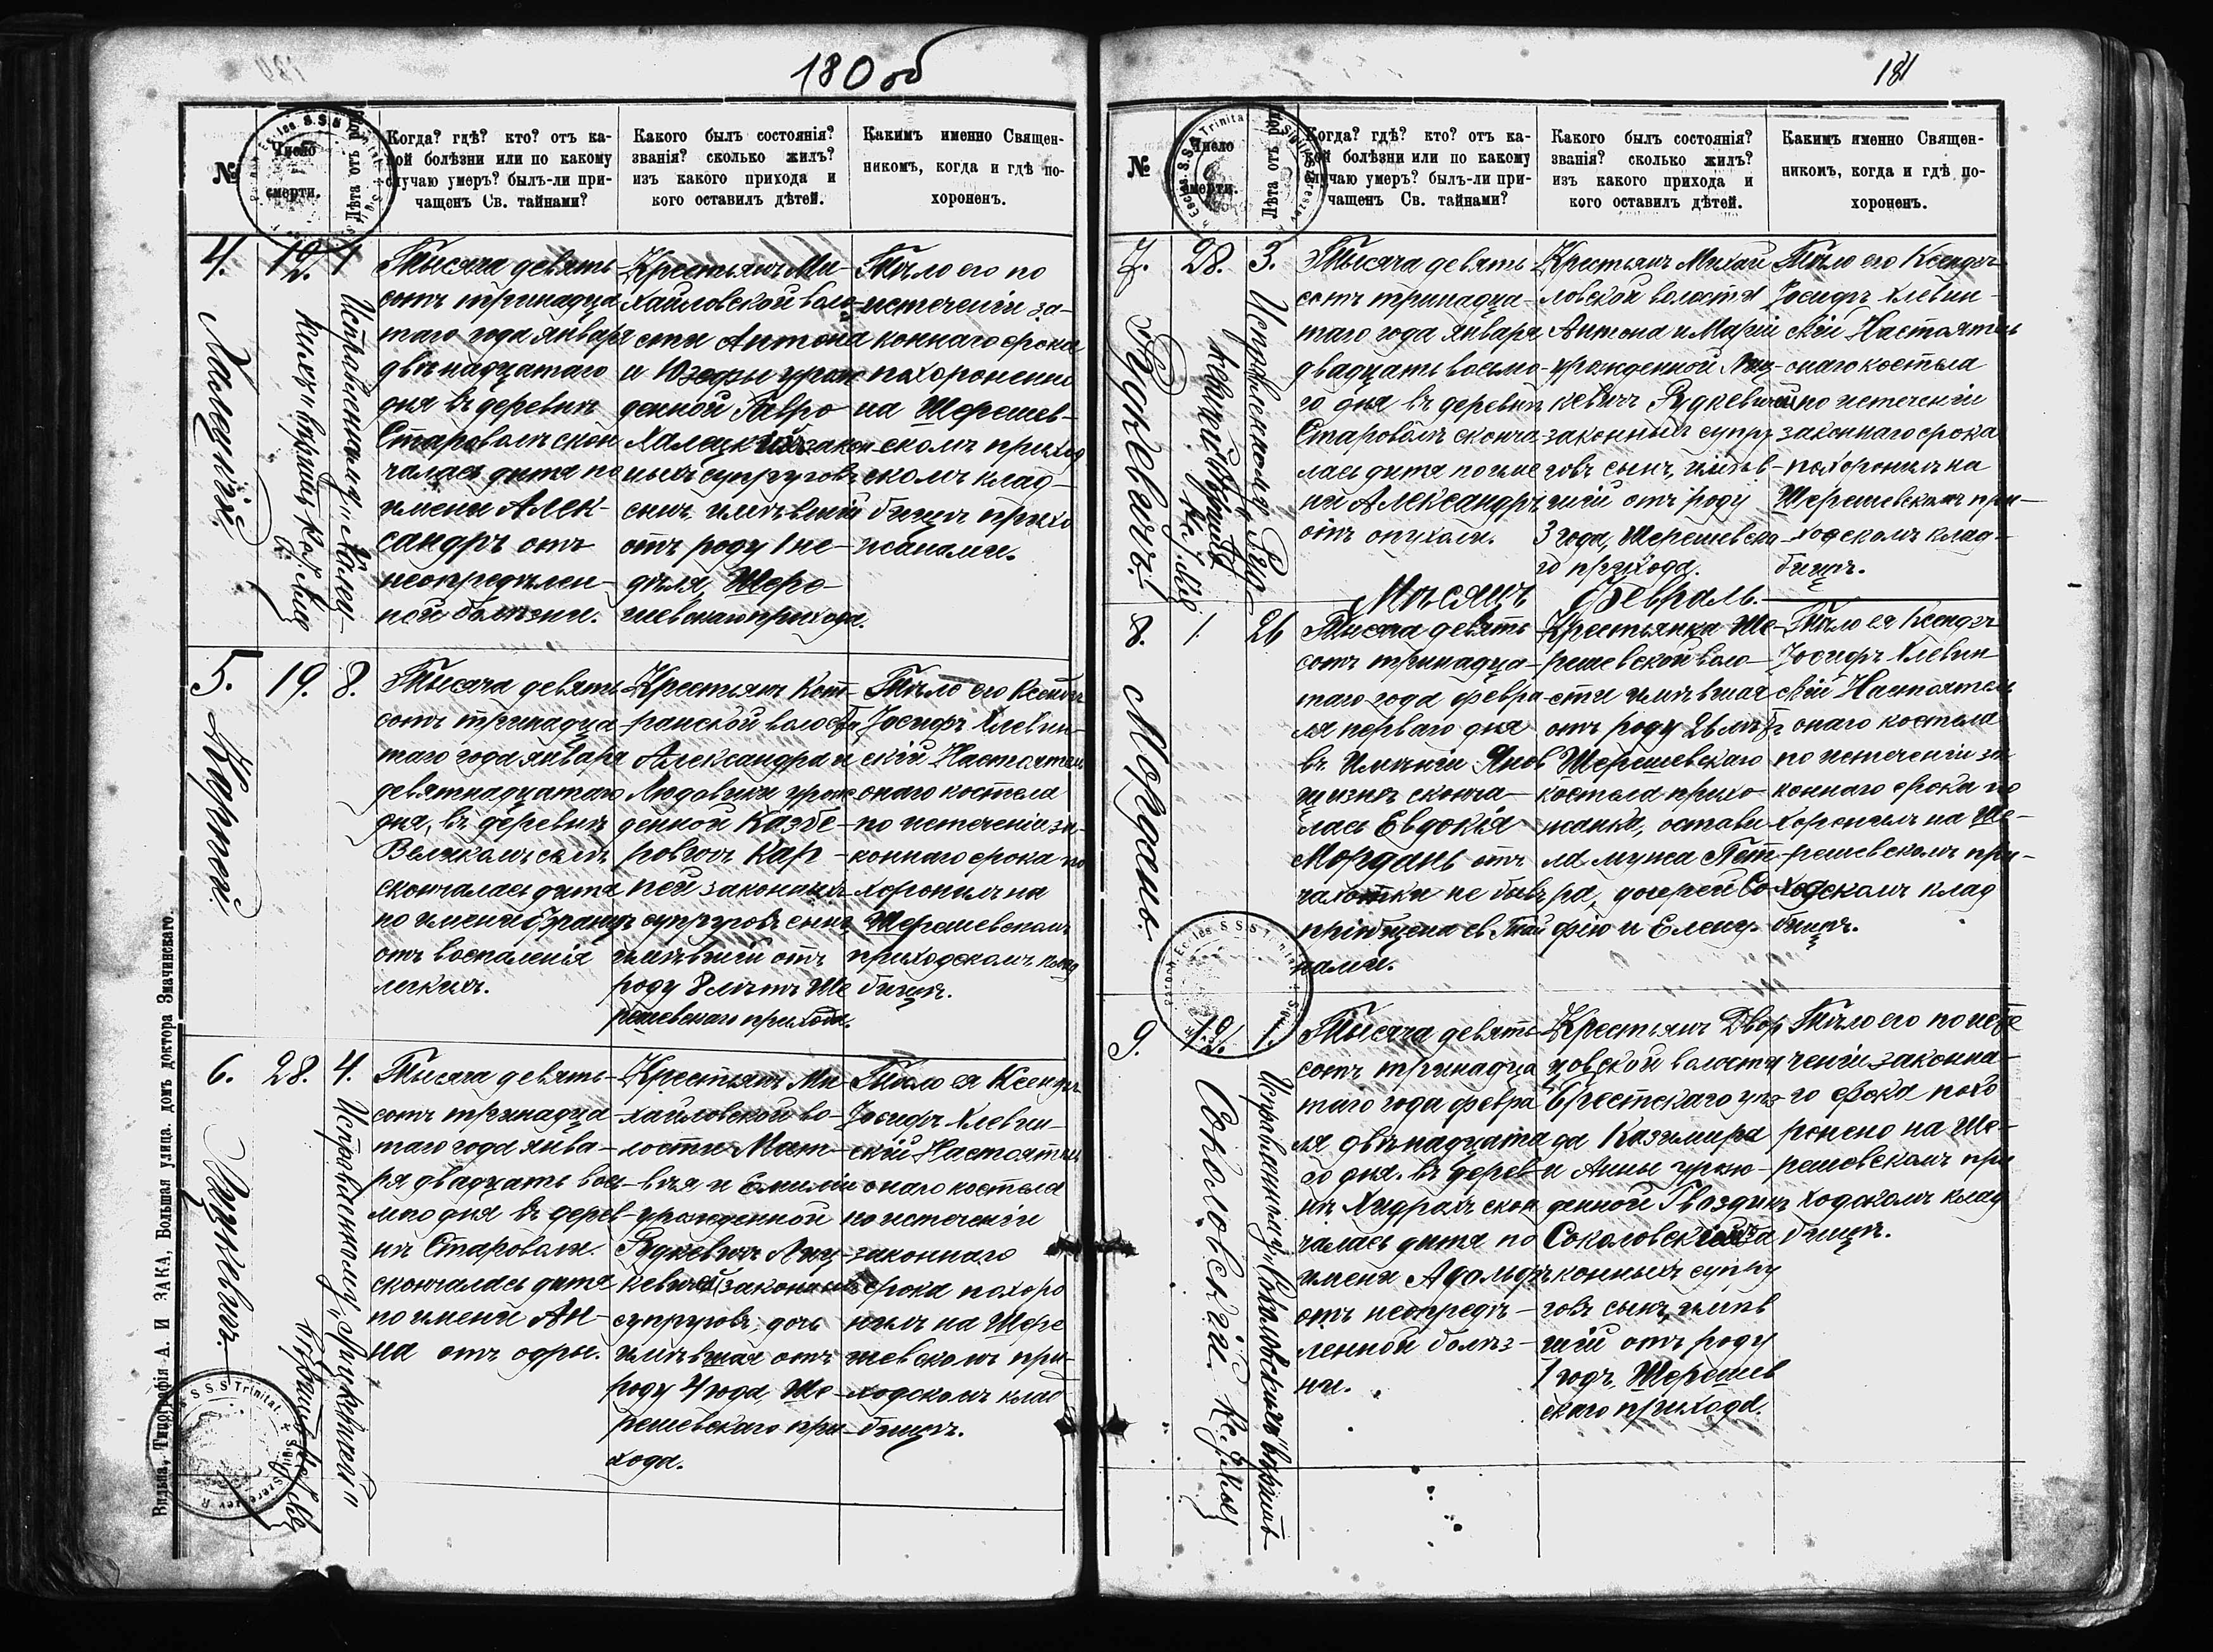 180 об
№
Число смерти.
Лѣта отъ род
Когда? гдѣ? кто? отъ ка-
кой болѣзни или по какому
случаю умеръ? былъ-ли при-
чащенъ Св. тайнами?
Какого былъ состоянія?
званія? сколько жилъ?
изъ какого прихода и
кого оставилъ дѣтей.
Какимъ именно Священ-
никомъ, когда и гдѣ по-
хороненъ.
4.
12.
1
Халецкій.
Тысяча девять-
сотъ тринадца
таго года января
двѣнадцатаго
дня въ деревнѣ
Староволѣ скон
чалась дитя по
имени Алек-
сандръ отъ
неопредѣлен-
ной болѣзни.
Крестьянъ Ми-
хайловской воло-
сти Антона
и Юзефы урож
денной Гавро
Халецкихъ закон
ныхъ супруговъ
сынъ имѣвшій
отъ роду 1 не-
дѣля, Шере-
шевскаго прихода.
Тѣло его по
истеченіи за-
коннаго срока
похоронено
на Шерешев-
скомъ приход
скомъ клад-
бищѣ прихо
жанами.
5.
19.
8.
Карпей.
Тысяча девять
сотъ тринадца
таго года января
девятнадцатаго
дня, въ деревнѣ
Великомъ селѣ
скончалась дитя
по имени Францъ
отъ воспаленія
легкихъ.
Крестьянъ Кот-
ранской волости
Александра и
Людвики урож
денной Казбе-
ровичъ Кар-
пей законныхъ
супруговъ сынъ
имѣвшій отъ
роду 8 лѣтъ Ше
решевскаго прихода.
Тѣло его Ксендзъ
Іосифъ Хлевин-
скій Настоятель
онаго костела
по истеченіи за-
коннаго срока по
хоронилъ на
Шерешевскомъ
приходскомъ клад
бищѣ.
6.
28.
4.
Лицкевичъ.
Тысяча девять-
сотъ тринадца
таго года янва-
ря двадцать вось
маго дня въ дерев-
нѣ Староволи.
скончалась дитя
по имени Ан-
на отъ одры.
Крестьянъ Ми-
хайловской во-
лости Мат-
вѣя и Емиліи
урожденной
Рудкевичъ Лиц-
кевичей законныхъ
супруговъ, дочь
имѣвшая отъ
роду 4 года, Ше-
решевскаго при-
хода.
Тѣло ея Ксендзъ
Іосифъ Хлевин-
скій Настоятель
онаго костела
по истеченіи
законнаго
срока похоро
нилъ на Шере
шевскомъ при-
ходскомъ клад
бищѣ.
Вильна, Типографія А. И ЗАКА, Большая улица. домъ доктора Значинскаго.
181
№
Число смерти.
Лѣта отъ род
Когда? гдѣ? кто? отъ ка-
кой болѣзни или по какому
случаю умеръ? былъ-ли при-
чащенъ Св. тайнами?
Какого былъ состоянія?
званія? сколько жилъ?
изъ какого прихода и
кого оставилъ дѣтей.
Какимъ именно Священ-
никомъ, когда и гдѣ по-
хороненъ.
7.
28.
3.
Рудкевичъ.
Тысяча девять
сотъ тринадца-
таго года января
двадцать восьмо-
го дня въ деревнѣ
Староволѣ сконча
лась дитя по име
ни Александръ
отъ опухоли.
Крестьянъ Михай
ловской волости
Антона и Маріи
урожденной Лиц-
кевичъ Рудкевичей
законныхъ супру
говъ сынъ, имѣв-
шій отъ роду
3 года, Шерешевска
го прихода.
Тѣло его Ксендзъ
Іосифъ Хлевин-
скій Настоятель
онаго костела
по истеченіи
законнаго срока
похоронилъ на
Шерешевскомъ при-
ходскомъ клад-
бищѣ.
Мѣсяцъ Февраль.
8.
1.
26
Мордань.
Тысяча девять
сотъ тринадца-
таго года февра
ля перваго дня
въ имѣніи Янов
щизнѣ сконча-
лась Евдокія
Мордань отъ
чахотки не бывъ
пріобщена св. Тай
нами.
Крестьянка Ше-
решевской воло-
сти имѣвшая
отъ роду 26 лѣтъ
Шерешевскаго
костела прихо-
жанка, остави
ла мужа Пет-
ра, дочерей Со
фію и Елену.
Тѣло ея Ксендзъ
Іосифъ Хлевин
скій Настоятель
онаго костела
по истеченіи за
коннаго срока по
хоронилъ на Ше-
решевскомъ при-
ходскомъ клад
бищѣ.
9.
12.
1.
Соколовскій.
Тысяча девять-
сотъ тринадца
таго года февра
ля двѣнадцата
го дня въ дерев
нѣ Хидрахъ скон
чалась дитя по
имени Адольфъ
отъ неопредѣ-
ленной болѣз-
ни.
Крестьянъ Двор
цовской волости
Брестскаго уѣз
да Казимира
и Анны урож-
денной Гвоздикъ
Соколовскихъ за
конныхъ супру
говъ сынъ, имѣв
шій отъ роду
1 годъ, Шерешев
скаго прихода.
Тѣло его по исте
ченіи законна-
го срока похо
ронено на Ше-
решевскомъ при
ходскомъ клад
бищѣ.